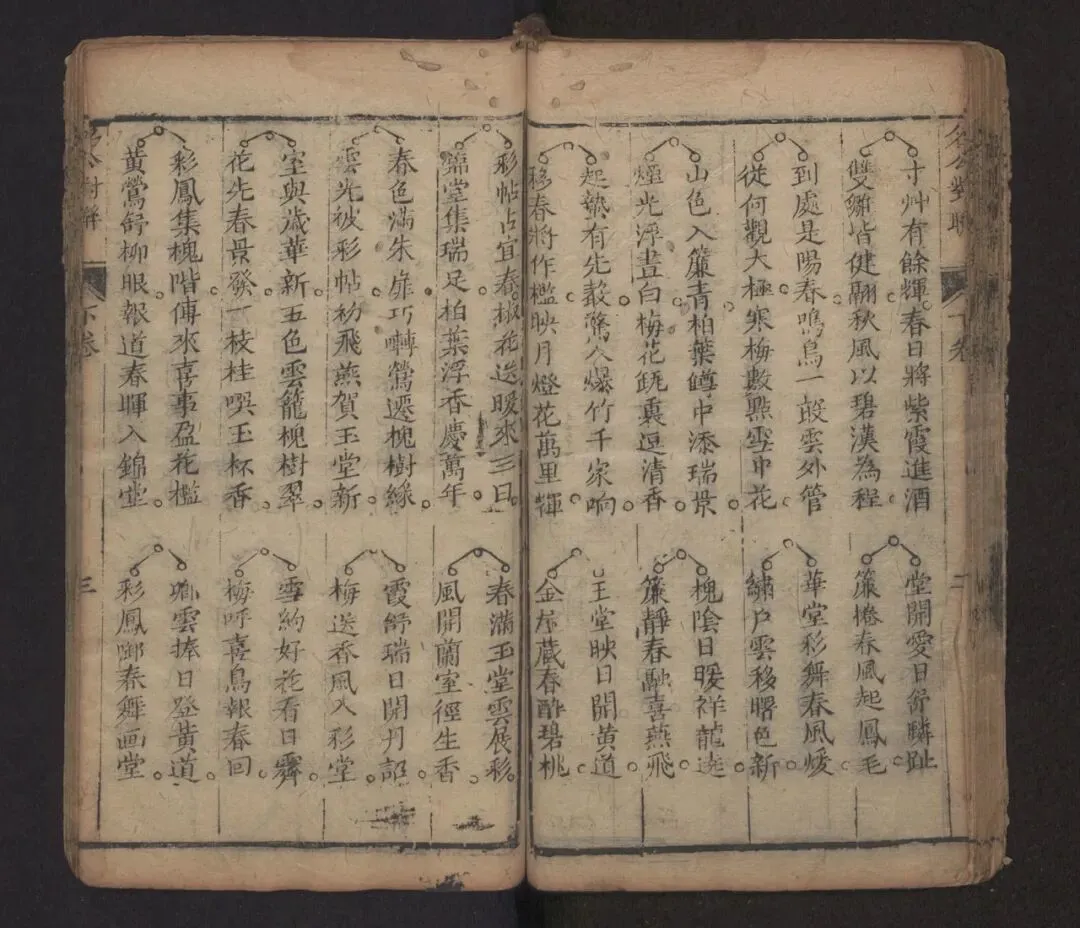 名公對聯 下卷 二
寸艸有餘輝春日將紫霞進酒
雙雛皆健翮秋風以碧漢為程
到處是陽春鳴鳥一聲雲外管
從何觀大極寒梅數點雪中花
山色入簾青柏葉罇中添瑞景
煙光浮晝白梅花甌裏逗清香
起蟄有先聲驚人爆竹千家响
移春將作檻映月燈花萬里輝
堂開愛日舒麟趾
簾捲春風起鳳毛
華堂彩舞春風煖
繡户雲移曙色新
槐陰日暖祥龍遶
簾靜春融喜燕飛
玉堂映日開黃道
金屋藏春醉碧桃
彩帖占宜春椒花送暖來三日
臨堂集瑞足柏葉浮香慶萬年
春色滿朱扉巧囀鶯遷槐樹緑
雲光被彩帖初飛燕賀玉堂新
室與歲華新五色雲籠槐樹翠
花先春景發一枝桂噀玉杯香
彩鳳集槐階傳來喜事盈花檻
黃鶯舒柳眼報道春暉入錦堂
春滿玉堂雲展彩
風開蘭室徑生香
霞舒瑞日開丹詔
梅送香風入彩堂
雪約好花看日霽
梅呼喜鳥報春回
卿雲捧日登黃道
彩鳳啣春舞画堂
名公對聯 下卷 三